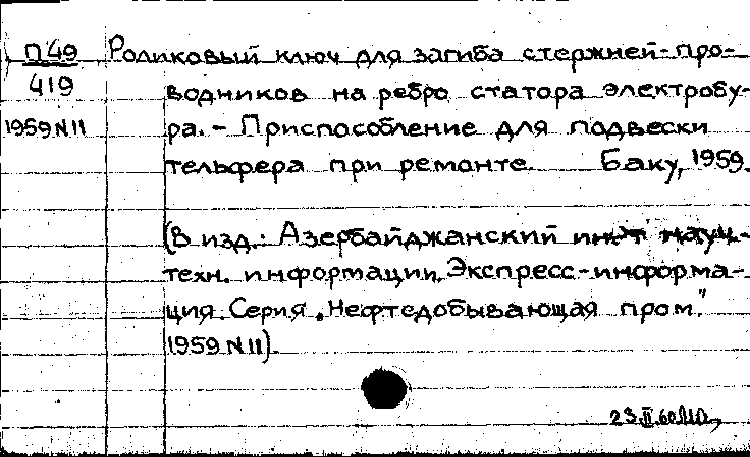 П49 Роликовый ключ для загиба стержней-про-
419 водников на ребро статора электробу-
1959 N 11 ра. - Приспособление для подвески
тельфера при ремонте. Баку, 1959.
(В изд.: Азербайджанский ин-т науч.-
техн. информации. Экспресс-информа-
ция. Серия „Нефтедобывающая пром."
1959 N 11).
23.II.60